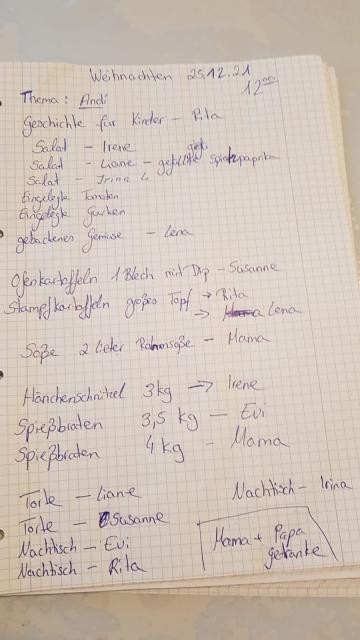 Weihnachten 25.12.21
12⁰⁰
Thema: Andi
Geschichte für Kinder - Rita
Salat - Irene
Salat - Liane - gefüllte Spitzpaprika
Salat - Irina L
Eingelegte Tomaten
Eingelegte Gurken
gebackenes Gemüse - Lena
Ofenkartoffeln 1 Blech mit Dip - Susanne
Stampfkartoffeln großes Topf → Rita
→ Lena
Soße 2 Lieter Rahmsoße - Mama
Hänchenschnitzel 3kg → Irene
Spießbraten 3,5 kg - Evi
Spießbraten 4 kg - Mama
Torte - Liane
Nachtisch - Irina
Torte - Susanne
Nachtisch - Evi
Nachtisch - Rita
Mama + Papa
getränke